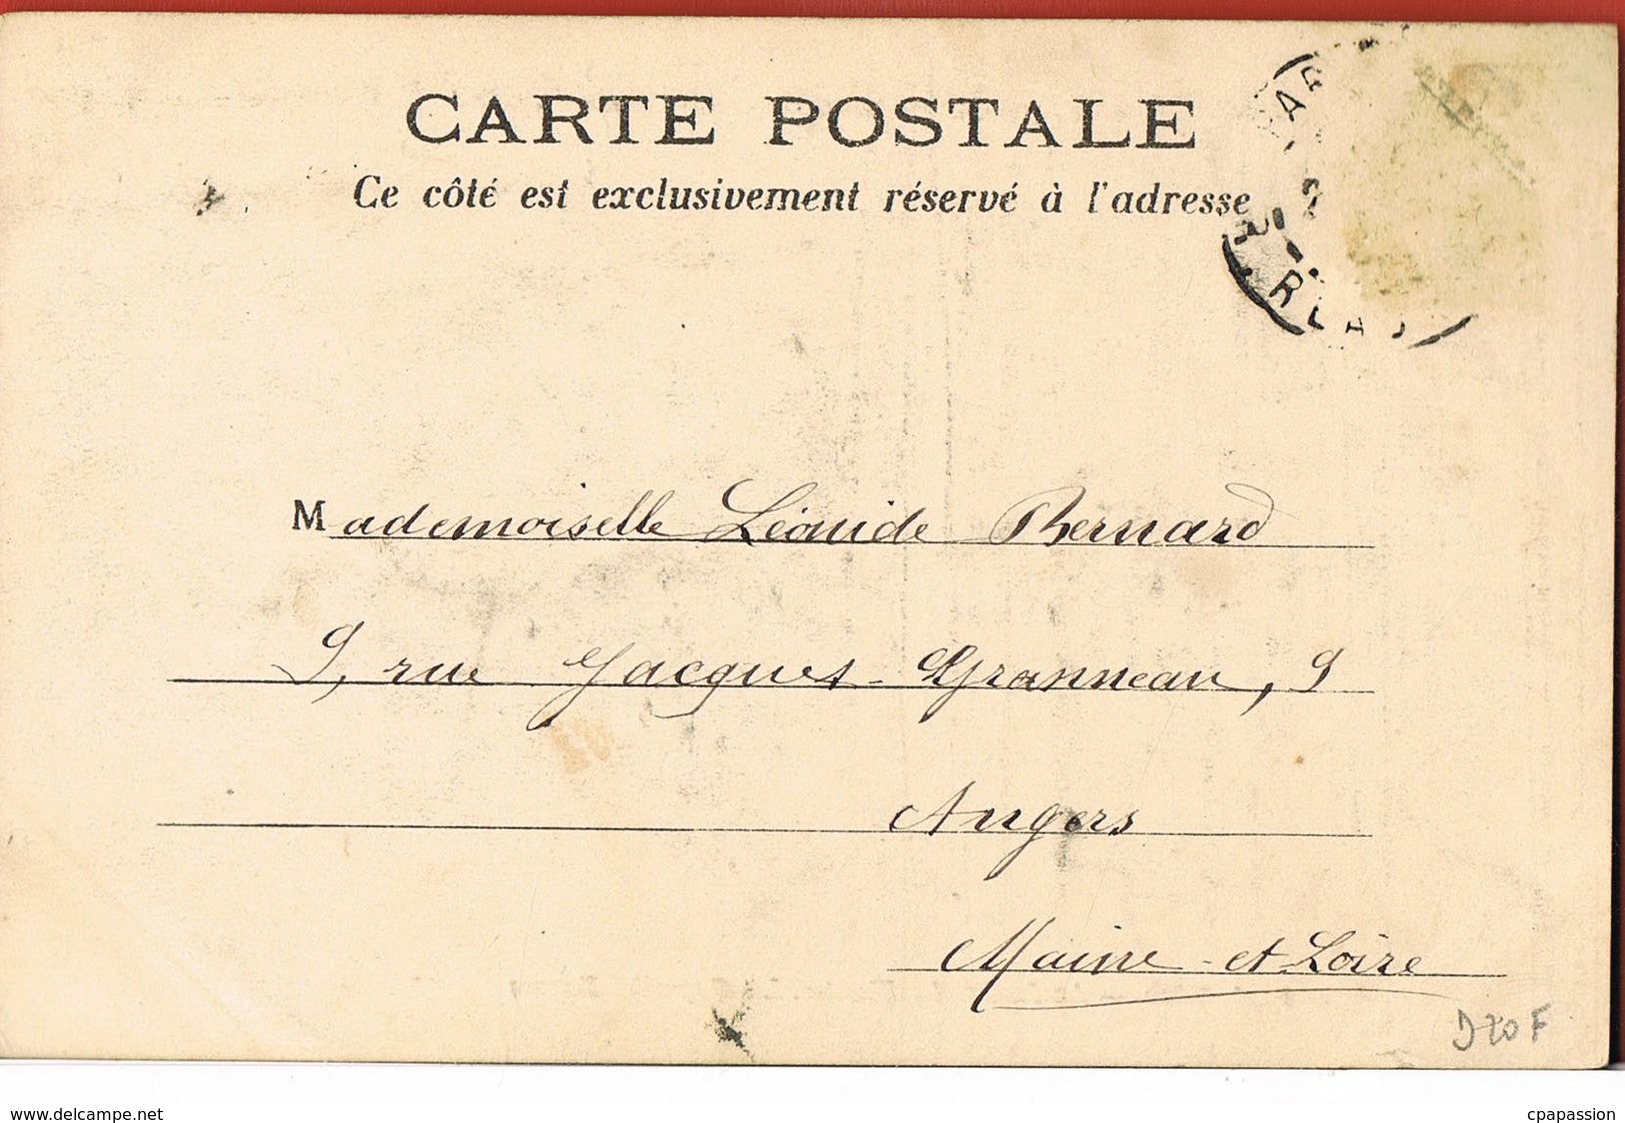 CARTE POSTALE
Ce côté est exclusivement réservé à l'adresse
Mademoiselle Léonide Bernard
9, rue Jacques-Granneau, 9
Angers
Maine-et-Loire
www.delcampe.net
cpapassion